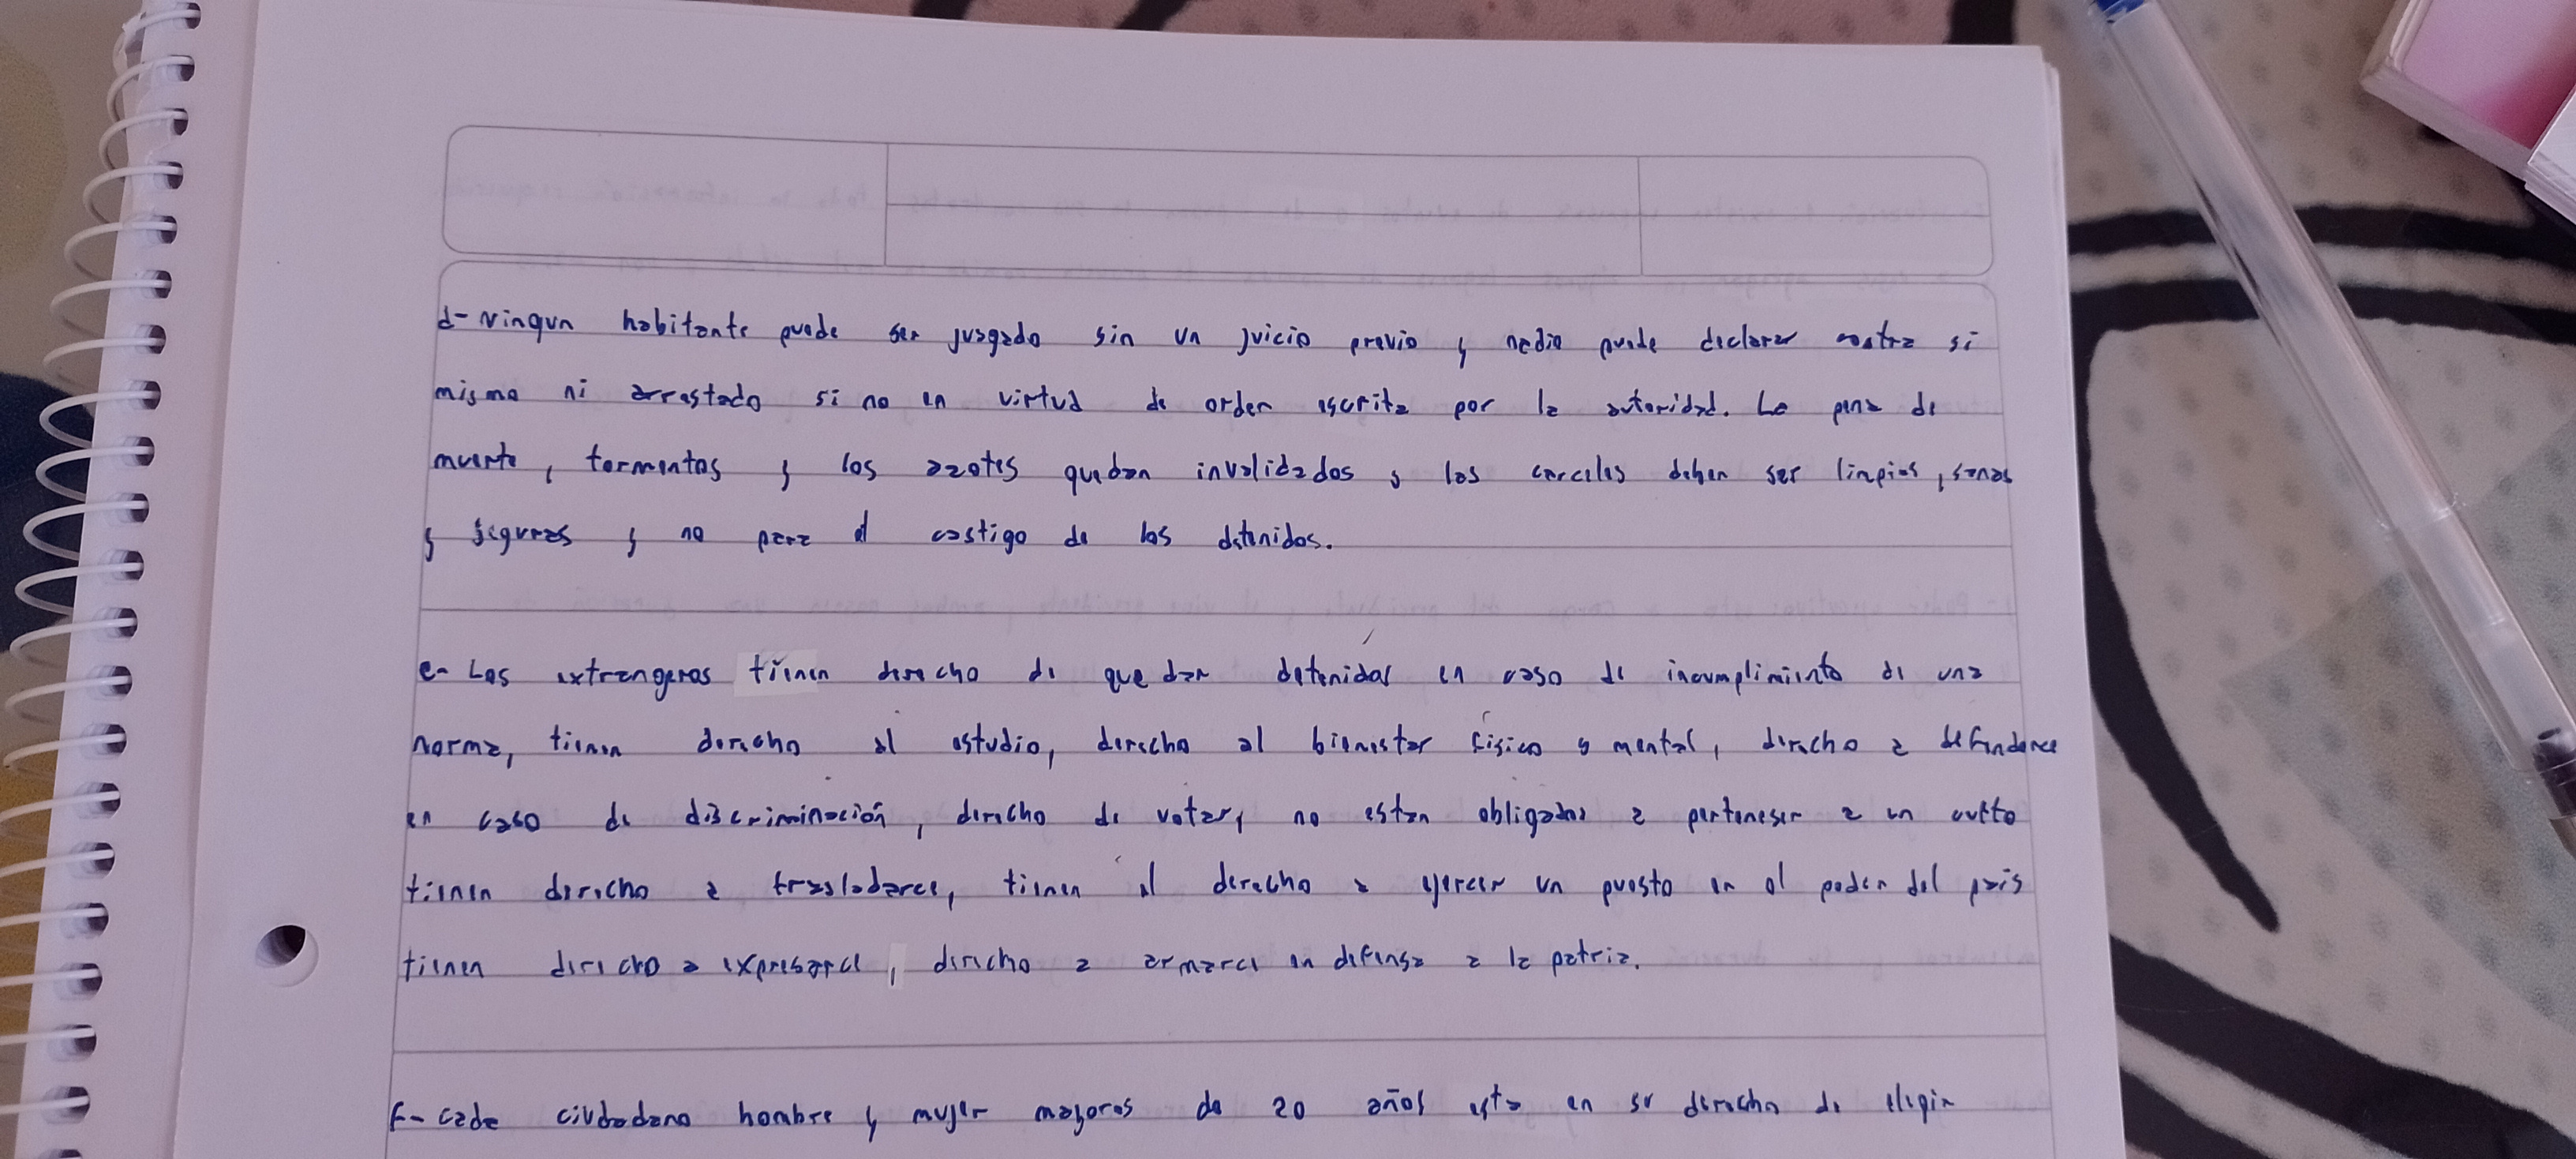 d- ningun habitante puede ser juzgado sin un juicio previo y nadie puede declarar contra si
mismo ni arrestado si no en virtud de orden escrita por la autoridad. La pena de
muerte, tormentos y los azotes quedan invalidados y las carceles deben ser limpias, sanas
y seguras y no para el castigo de los detenidos.
e- Los extrangeros tienen derecho de quedar detenidos en caso de incumplimiento de una
norma, tienen derecho al estudio, derecho al bienestar físico y mental, derecho a defenderce
en caso de discriminación, derecho de votar, no estan obligados a perteneser a un culto
tienen derecho a trasladarce, tienen el derecho a ejercer un puesto en el poder del pais
tienen derecho a expresarce, derecho a armarce en defensa a la patria.
F- cada ciudadano hombre y mujer mayores de 20 años esta en su derecho de elegir